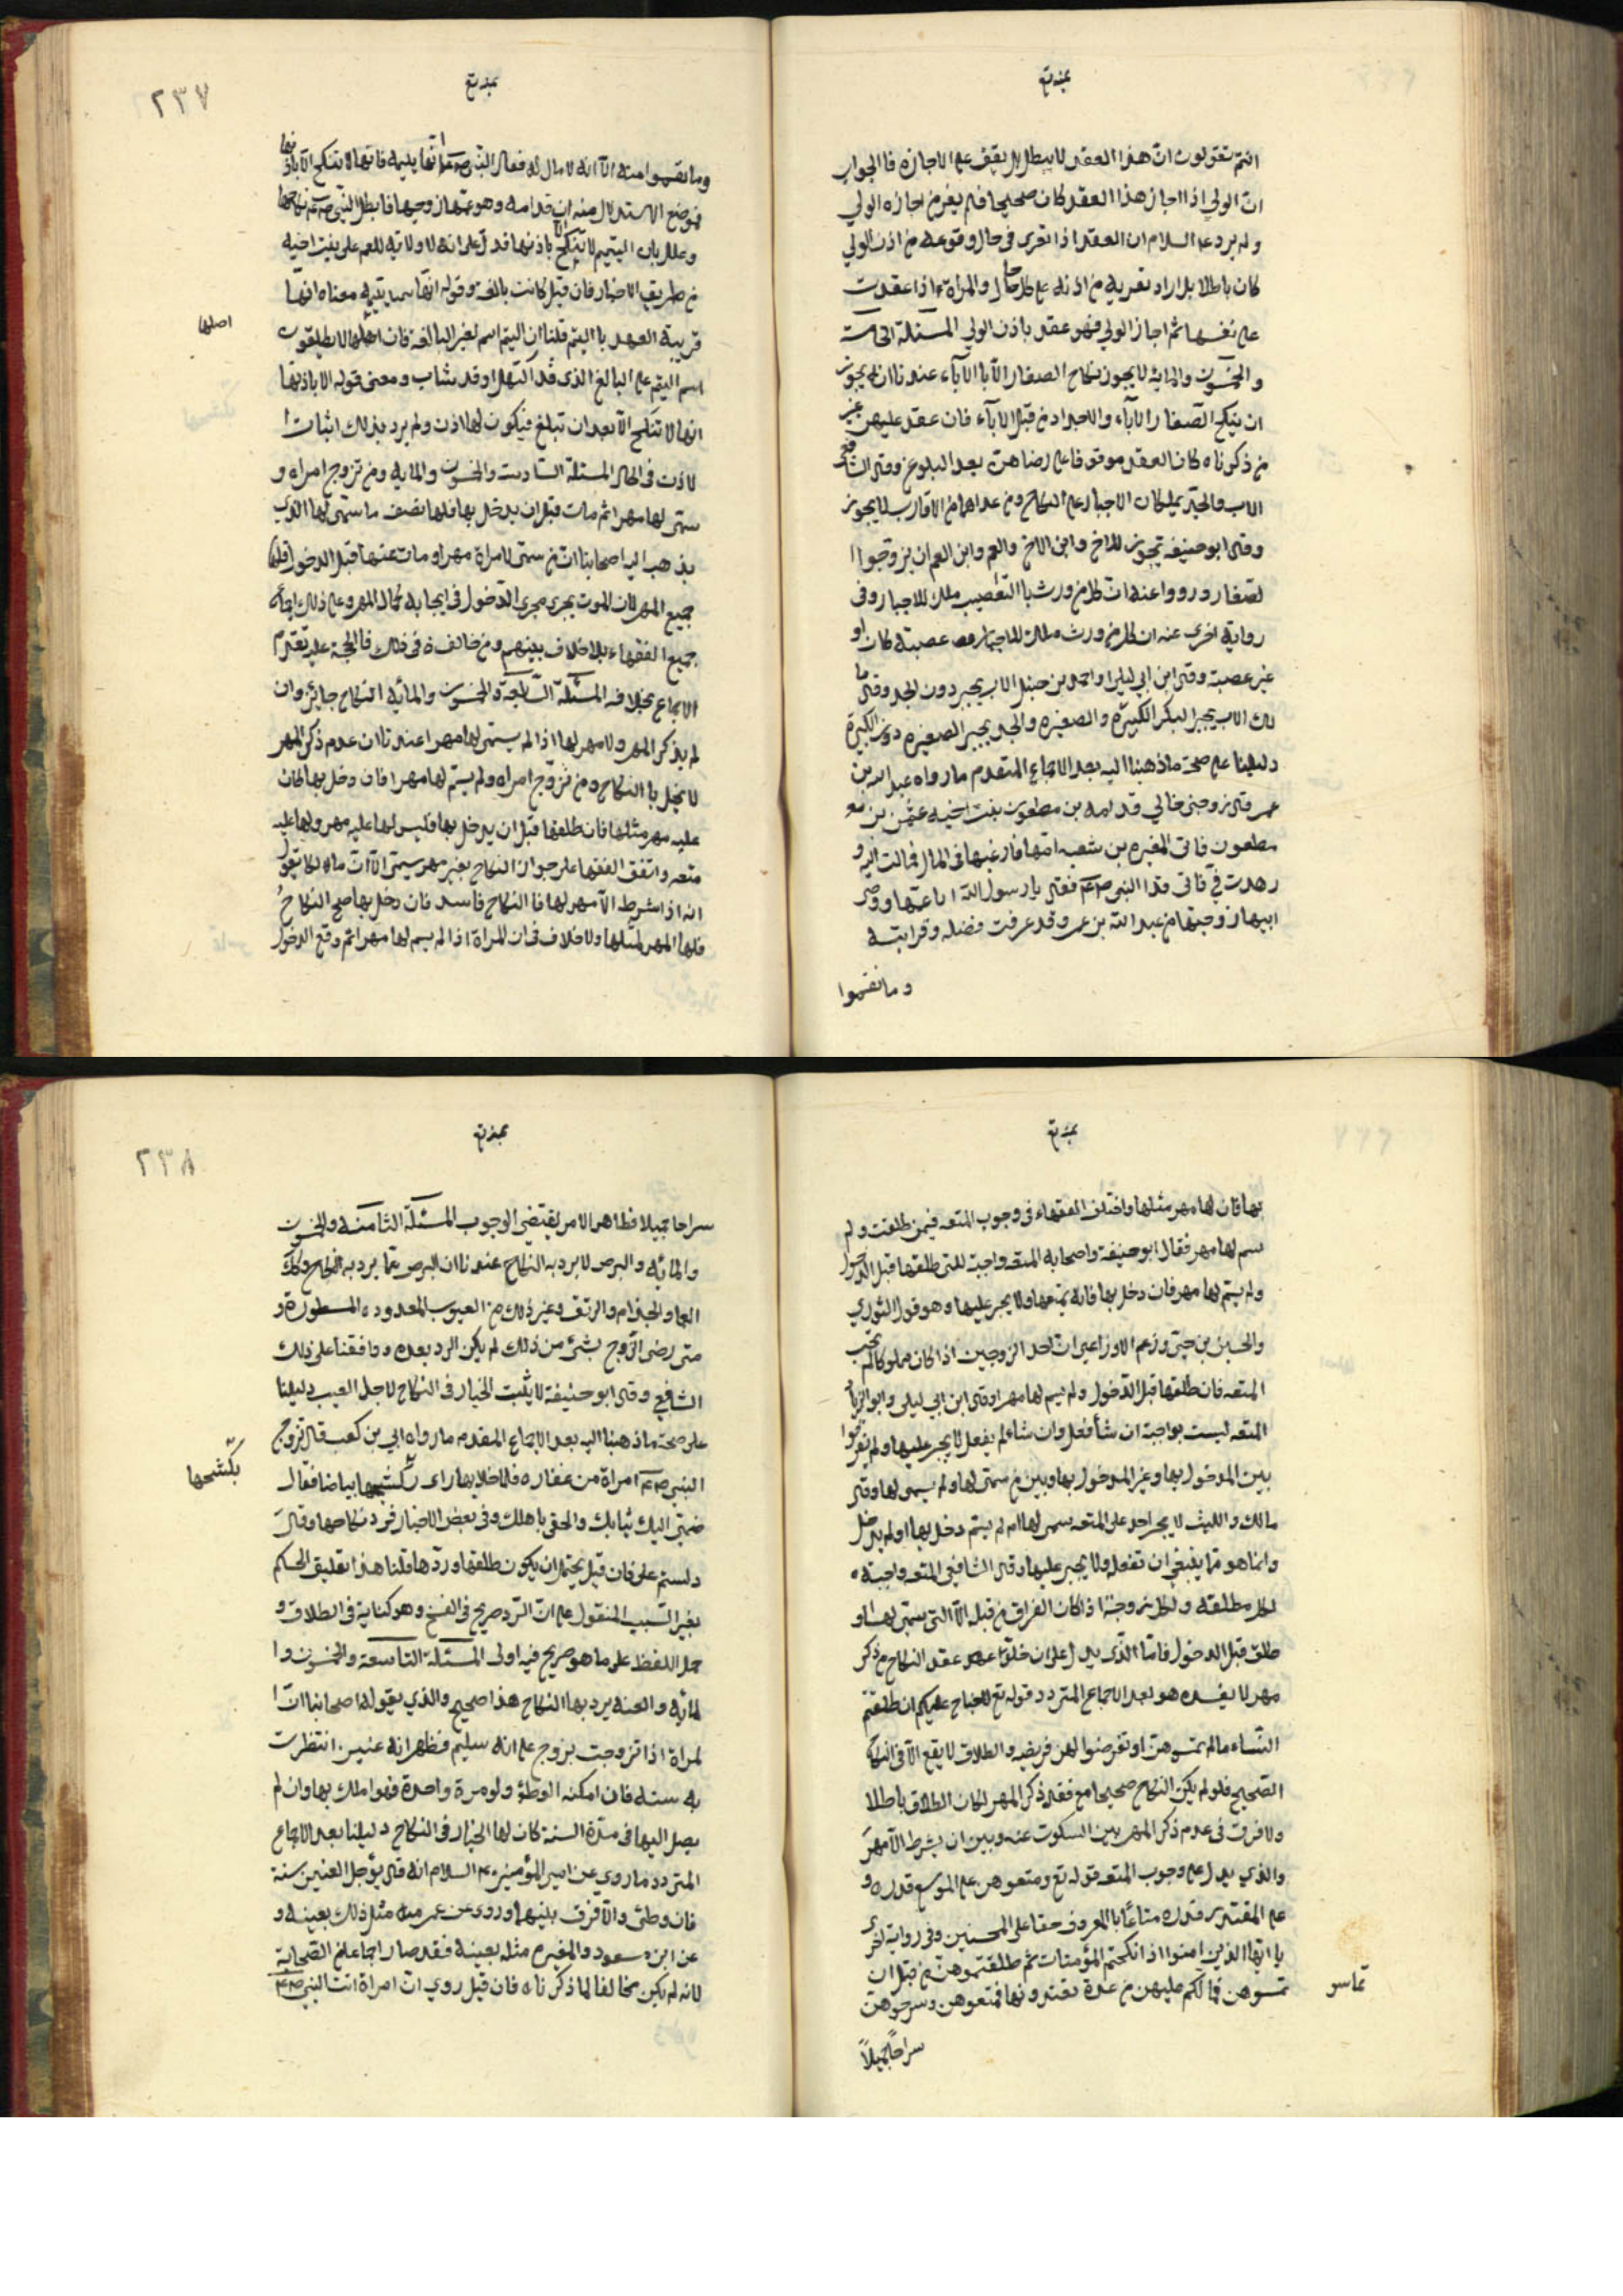 انتم تقولون ان هذا العقد لا يبطل بل يقف على الاجازه فالجواب
ان الولي اذا اجاز هذا العقد كان صحيحا فلم يعر من اجازه الولي
ولم يرد عليه السلام ان العقد اذا تعرى في حال وقوعه من اذن الولي
كان باطلا بل اراد تعريه من اذنه على كل حال والمراة اذا عقدت
على نفسها ثم اجاز الولي فهو عقد باذن الولي المسئلة الخامسة
والخمسون والمايه لا يجوز نكاح الصغار الا بالآباء عندنا انه يجوز
ان ينكح الصغار الآباء والاجداد من قبل الآباء فان عقد عليهن غير
من ذكرناه كان العقد موقوفا على رضاهن بعد البلوغ وقال الشافعي
الاب والجد يملكان الاجبار على النكاح ومن عداهما من الاقارب لا يجوز
وقال ابو حنيفه يجوز للاخ وابن الاخ والعم وابن العم ان يزوجوا ا
لصغار ورووا عنه ان كل من ورث بالتعصيب ملك الاجبار وفى
رواية اخرى عنه ان كل من ورث ملك الاجبار عصبة كان او
غير عصبة وقال ابن ابي ليلى واحمد بن حنبل الاب يجبر دون الجد وقال ما
لك الاب يجبر البكر الكبيرة والصغيره والجد يجبر الصغيره دون الكبيرة
دليلنا على صحة ما ذهبنا اليه بعد الاجماع المتقدم ما رواه عبد الله بن
عمر قال زوجنى خالي قدامه بن مظعون بنت اخيه عثمن بن
مظعون فاتى المغيره بن شعبه امها فارغبها فى المال فمالت اليه و
زهدت فيّ فاتى قدامه النبي صم فقال يا رسول الله انا عمها ووصي
ابيها زوجتها من عبد الله بن عمر وقد عرفت فضله وقرابته
وما نقموا
٢٣٧
وما نقموا منه الا انه لا مال له فقال النبي صم انها يتيمه فانها لا تنكح الا باذنها
فموضع الاستدلال منه ان قدامه وهو عمها زوجها فابطل النبي صم نكاحها
وعلل بان اليتيم لا تنكح الا باذنها فدل على انه لا ولاية للعم على بنت اخيه
من طريق الاجبار فان قيل كانت بالغه وقوله انها يتيمه معناه انها
قريبة العهد بااليتم قلنا ان اليتم اسم لغير البالغه فان اهلها لا يطلقون
اصلها
اسم اليتم على البالغ الذى قد اكتهل او قد شاب ومعنى قوله الا باذنها
انها لا تنكح الا بعد ان تبلغ فيكون لها اذن ولم يرد بذلك اثبات ا
لاذن فى الحال المسئلة السادسة والخمسون والمايه ومن تزوج امراه و
سمى لها مهرا ثم مات قبل ان يدخل بها فلها نصف ما سمى لها الذي
يذهب اليه اصحابنا ان من سمى لامراة مهرا ومات عنها قبل الدخول فلها
جميع المهر لان الموت يجرى مجرى الدخول فى ايجابه كمال المهر وعلى ذلك اجماع
جميع الفقهاء بلا خلاف بينهم ومن خالف فى ذلك فالحجة عليه تقدم
الاجماع بخلافه المسئلة السابعة والخمسون والمائه النكاح جائز وان
لم يذكر المهر ولا مهر لها اذا لم يسمى لها مهرا عندنا ان عدم ذكر المهر
لا يخل با النكاح ومن تزوج امراه ولم يسم لها مهرا فان دخل بها كان
عليه مهر مثلها فان طلقها قبل ان يدخل بها فليس لها عليه مهر ولها عليه
متعه واتفق الفقها على جواز النكاح بغير مهر يسمى الا ان مالكا يقول
انه اذا شرط الا مهر لها فا النكاح فاسد فان دخل بها صح النكاح
فلها المهر لمثلها ولا خلاف فى ان للمراة اذا لم يسم لها مهرا ثم وقع الدخول
بها فان لها مهر مثلها واختلف الفقهاء فى وجوب المتعه فيمن طلقت ولم
يسم لها مهر فقال ابو حنيفة واصحابه المتعه واجبة للتى طلقها قبل الدخول
ولم يسم لها مهر فان دخل بها فانه يمتعها ولا يجبر عليها وهو قول الثوري
والحسن بن حيّ وزعم الاوزاعي ان احد الزوجين اذا كان مملوكا لم تجب
المتعه فان طلقها قبل الدخول ولم يسم لها مهرا وقال ابن ابي ليلى وابو الزناد
المتعه ليست بواجبة ان شأ فعل وان شاء لم يفعل لا يجبر عليها ولم يفرقوا
بين المدخول بها وغير المدخول بها وبين من سمى لها ولم يسمى لها وقال
مالك والليث لا يجبر احد على المتعه يسمى لها ام لم يسم دخل بها او لم يدخل
وانما هو مما ينبغي ان تفعله ولا يجبر عليها وقال الشافعي المتعه واجبة
لكل مطلقه ولكل زوجة اذا كان الفراق من قبله الا التى سمى لها و
طلق قبل الدخول فاما الذى يدل على ان خلو عقد النكاح من ذكر
مهر لا يفسده هو بعد الاجماع المتردد قوله تع لا جناح عليكم ان طلقتم
النساء ما لم تمسوهن او تفرضوا لهن فريضه والطلاق لا يقع الا فى النكاح
الصحيح فلو لم يكن النكاح صحيحا مع فقد ذكر المهر لكان الطلاق باطلا
ولا فرق فى عدم ذكر المهر بين السكوت عنه وبين ان يشرط الا مهر
والذي يدل على وجوب المتعه قوله تع ومتعوهن على الموسع قدره و
على المقتر قدره متاعًا با المعروف حقا على المحسنين وفى رواية اخرى
يا ايها الذين امنوا اذا نكحتم المؤمنات ثم طلقتموهن من قبل ان
تمسوهن فما لكم عليهن من عدة تعتدونها فمتعوهن وسرحوهن
تماسو
سراحًا جميلاً
٢٣٨
سراحا جميلا فظاهر الامر يقتضى الوجوب المسئلة الثامنه والخمسون
والمائه والبرص لا يرد به النكاح عندنا ان البرص مما يرد به النكاح وكك
العما والجذام والرتق وغير ذلك من العيوب المعدوده المسطورة و
متى رضى الزوج بشئ من ذلك لم يكن الرد بعده ووافقنا على ذلك
الشافعي وقال ابو حنيفة لا يثبت الخيار فى النكاح لاجل العيب دليلنا
على صحة ما ذهبنا اليه بعد الاجماع المقدم ما رواه ابي بن كعب قال تزوج
النبي صم امراة من غفاره فلما خلا بها راى بكشحها بياضا فقال
بكشحها
ضمى اليك ثيابك والحقى باهلك وفى بعض الاخبار فرد نكاحها وقال
دلستم على فان قيل يحتمل ان يكون طلقها وردها قلنا هذا تعليق الحكم
بغير السبب المنقول على ان الرد صريح فى الفسخ وهو كناية فى الطلاق و
حمل اللفظ على ما هو صريح فيه اولى المسئلة التاسعة والخمسون وا
لمائه والعنه يرد بها النكاح هذا صحيح والذي يقوله اصحابنا ان ا
لمراة اذا تزوجت بزوج على انه سليم فظهر انه عنين انتظرت
به سنه فان امكنه الوطؤ ولو مرة واحدة فهو املك بها وان لم
يصل اليها فى مدة السنة كان لها الخيار فى النكاح دليلنا بعد الاجماع
المتردد ما روي عن امير المؤمنين عم السلام انه قال يؤجل العنين سنة
فان وطئ والا فرق بينهما وروى عن عمر مثل ذلك بعينه و
عن ابن مسعود والمغيره مثله بعينه فقد صار اجماعا من الصحابة
لانه لم يكن مخالفا لما ذكرناه فان قيل روي ان امراة اتت النبي صم